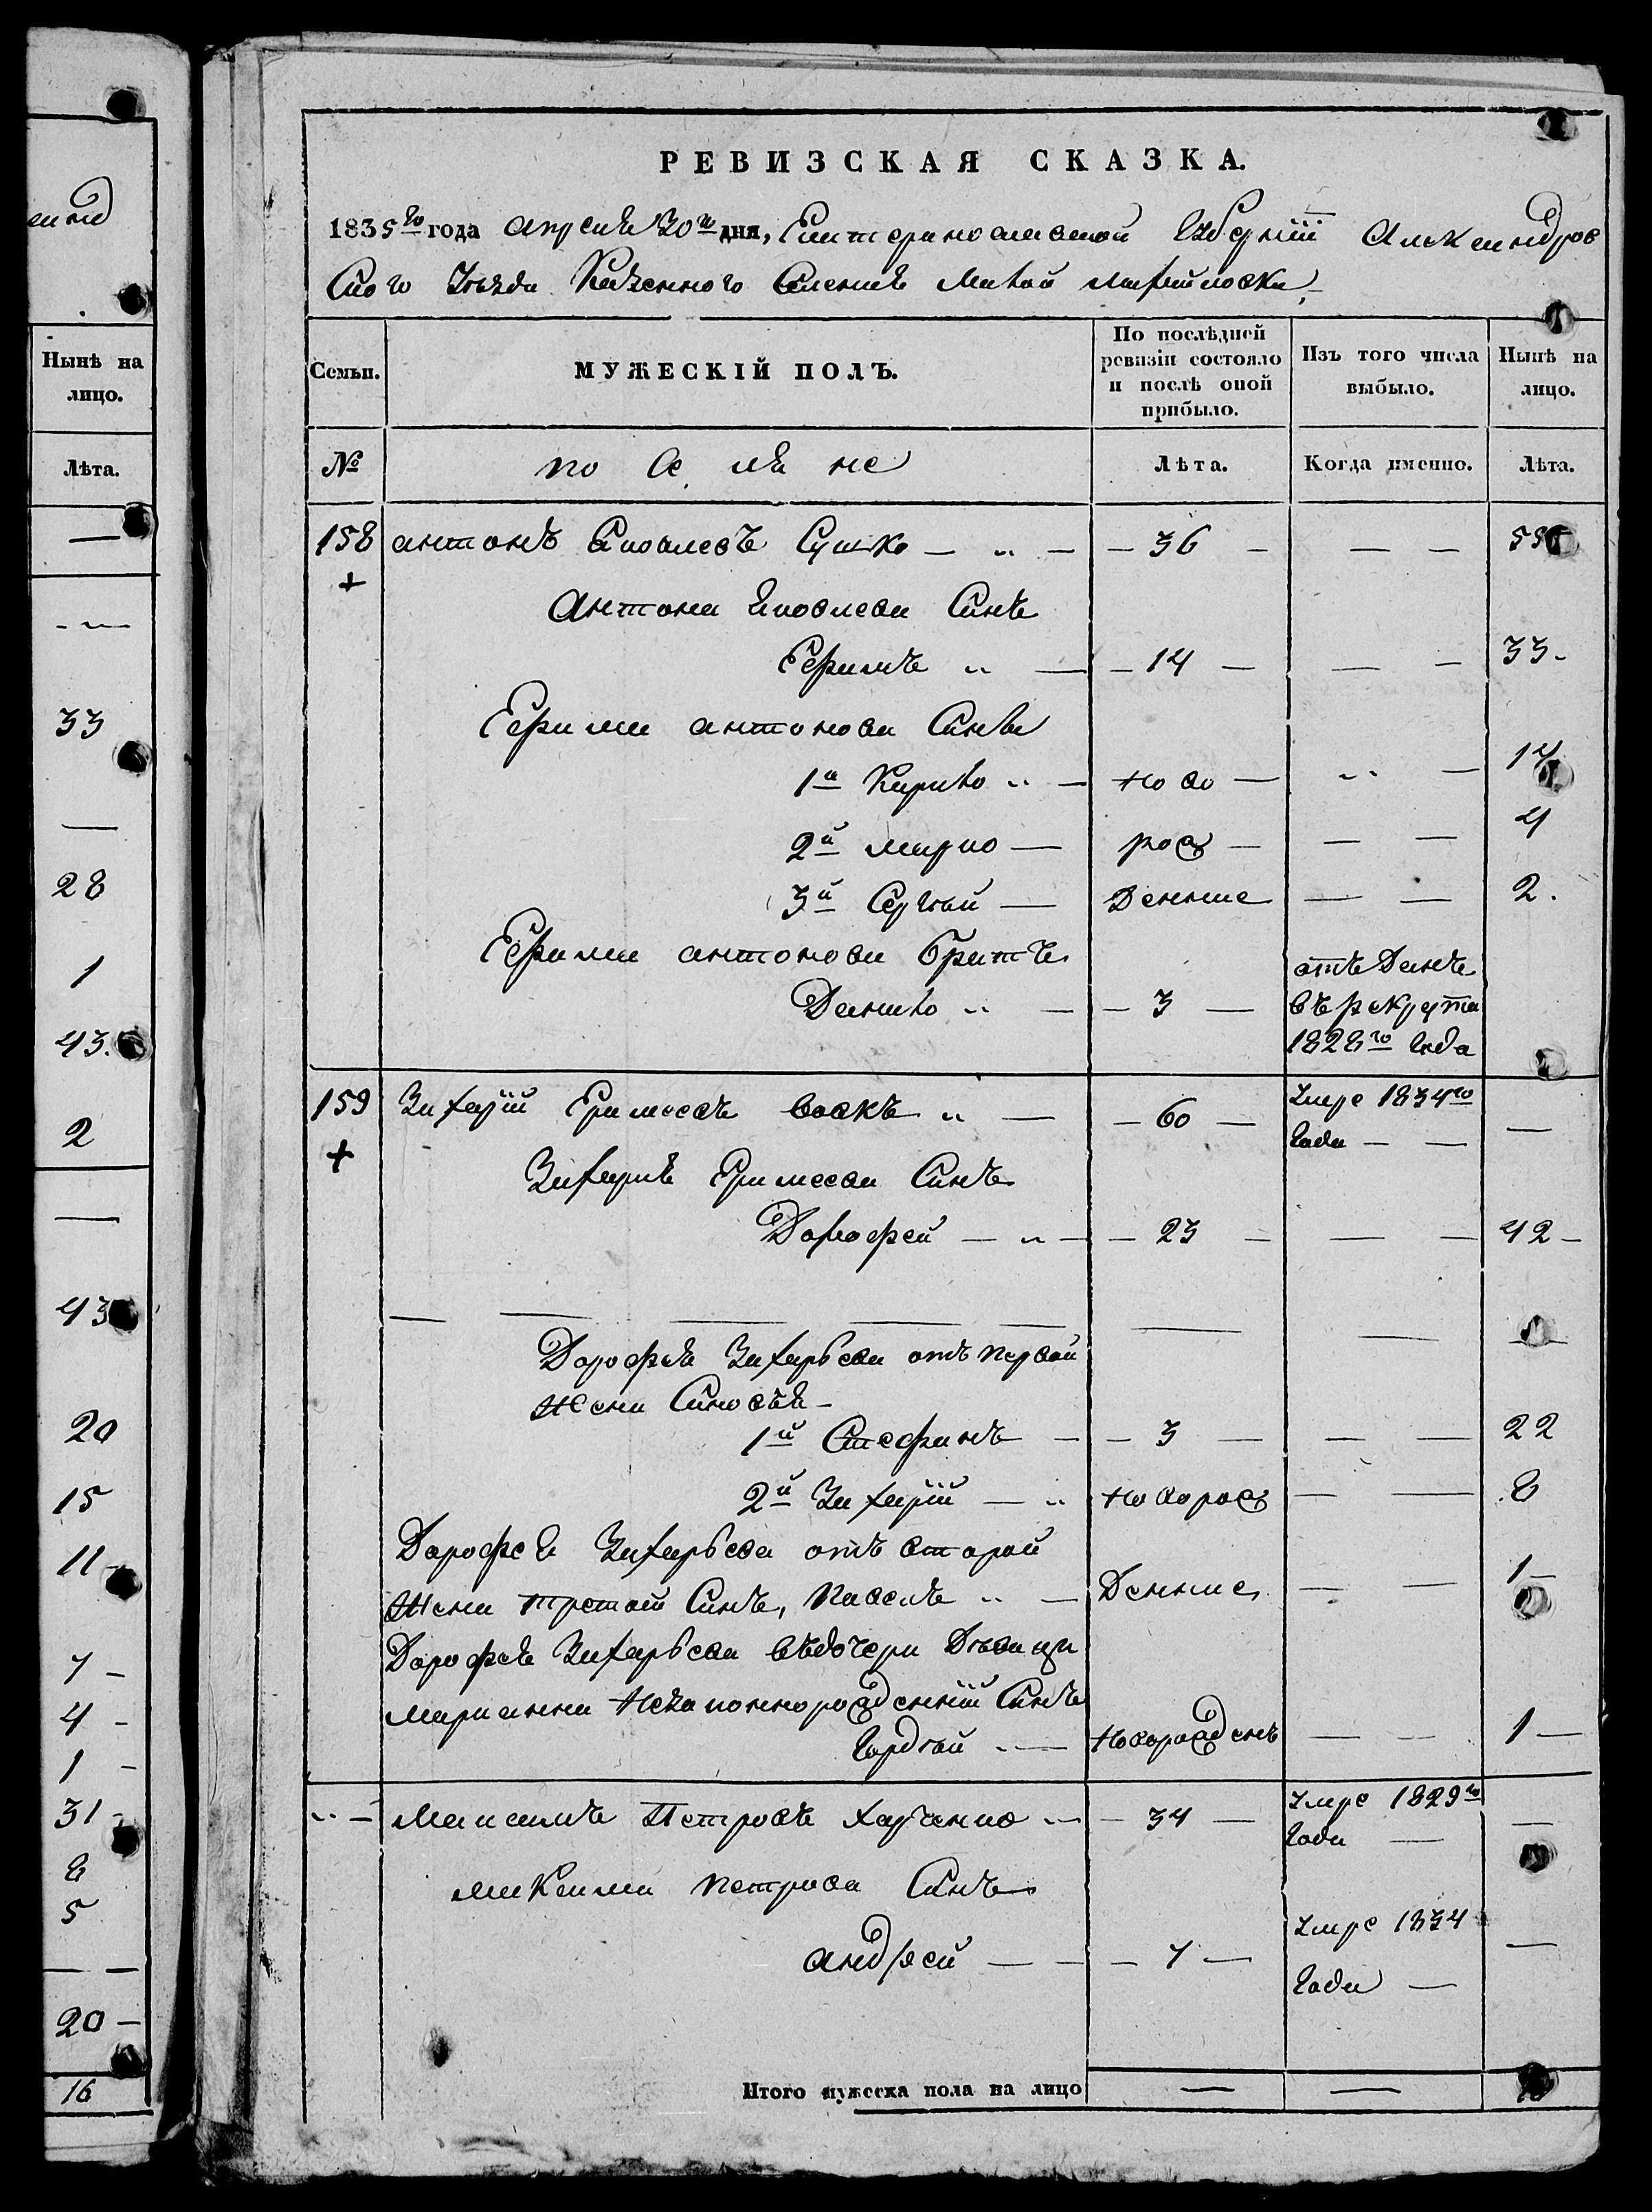 РЕВИЗСКАЯ СКАЗКА.
1835го года апреля 30го дня, Екатеринославской Губерніи Александров
ского Уезда Казенного Селения Малой Михайловки
Семьи.
МУЖЕСКІЙ ПОЛЪ.
По послѣдней ревизіи состояло и послѣ оной прибыло.
Изъ того числа выбыло.
Нынѣ на лицо.
№
Лѣта.
Когда именно.
Лѣта.
158 антонъ Яковлевъ Сушко 36
Антона Яковлева Синъ
Ефимъ 14 33
Ефима антонова Сины
1й Кирило ново 14
2й марко рож 4
3й СергѣйДенние 2.
Ефима антонова братъ
Данило 3 отъ Данъ
въ рекрути
1828го Года
159 Захарій Ефимовъ 60 Умре 1834го
Года
Захарія Синъ
Дорофей 23 42
Дорофея Захарьева отъ первой
жени Синовья
1й Стефанъ 3 22
2й Захарій новорож 8
Дорофея Захарьева отъ второй
Жени третой Синъ, Павелъ Денние 1
Дорофея Захарьева въдочери Дѣвици
марианни незаконнорожденній Синъ
Гордѣй новорожденъ 1
Максимъ Петровъ Харченко 34 Умре 1829го
Года
максима петрова Синъ
андрей 7 Умре 1834
Года
Итого мужеска пола на лицо
Нынѣ на лицо.
Лѣта.
33
28
1
43.
2
43
20
15
11
7
4
1
31
8
5
20
16